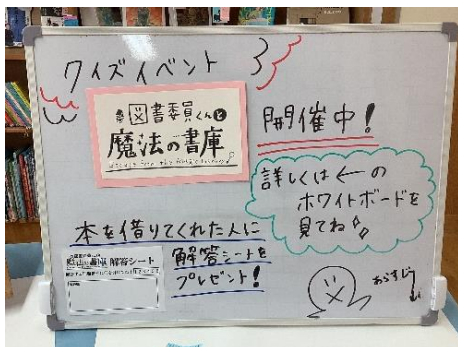 クイズイベント
図書委員くんと
魔法の書庫
開催中!
詳しくは←の
ホワイトボードを
見てね
本を借りてくれた人に
解答シートを
プレゼント!
魔法の書庫 解答シート
図
あらすじ↓